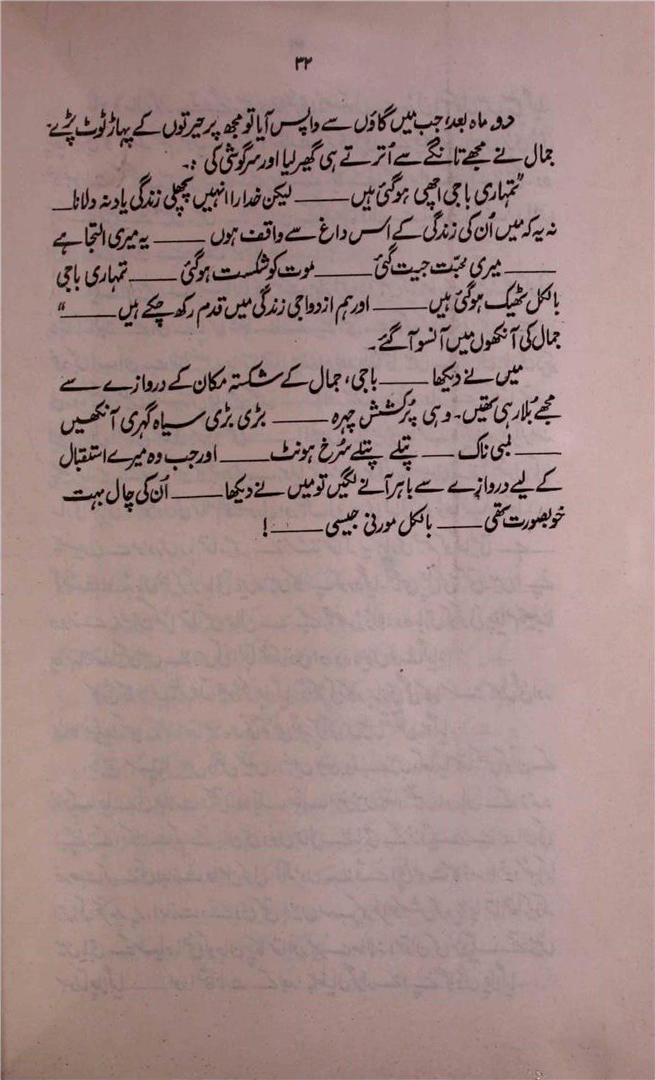 ۳۲
دو ماہ بعد، جب میں گاؤں سے واپس آیا تو مجھ پر حیرتوں کے پہاڑ ٹوٹ پڑے۔
جمال نے مجھے تانگے سے اُترتے ہی گھیر لیا اور سرگوشی کی :۔
"تمہاری باجی اچھی ہو گئی ہیں ــــــ لیکن خدارا انہیں پچھلی زندگی یاد نہ دلانا ــــ
نہ یہ کہ میں اُن کی زندگی کے اس داغ سے واقف ہوں ــــــ یہ میری التجا ہے
ــــــ میری محبّت جیت گئی ــــــ موت کو شکست ہو گئی ــــــ تمہاری باجی
بالکل ٹھیک ہو گئی ہیں ــــــ اور ہم ازدواجی زندگی میں قدم رکھ چکے ہیں ــــــ"
جمال کی آنکھوں میں آنسو آ گئے۔
میں نے دیکھا ــــــ باجی، جمال کے شکستہ مکان کے دروازے سے
مجھے بُلا رہی تھیں۔ وہی پُرکشش چہرہ ــــــ بڑی بڑی سیاہ گہری آنکھیں
ــــــ لمبی ناک ــــ پتلے پتلے سُرخ ہونٹ ــــــ اور جب وہ میرے استقبال
کے لیے دروازے سے باہر آنے لگیں تو میں نے دیکھا ــــــ اُن کی چال بہت
خوبصورت تھی ــــــ بالکل مورنی جیسی ــــــ!